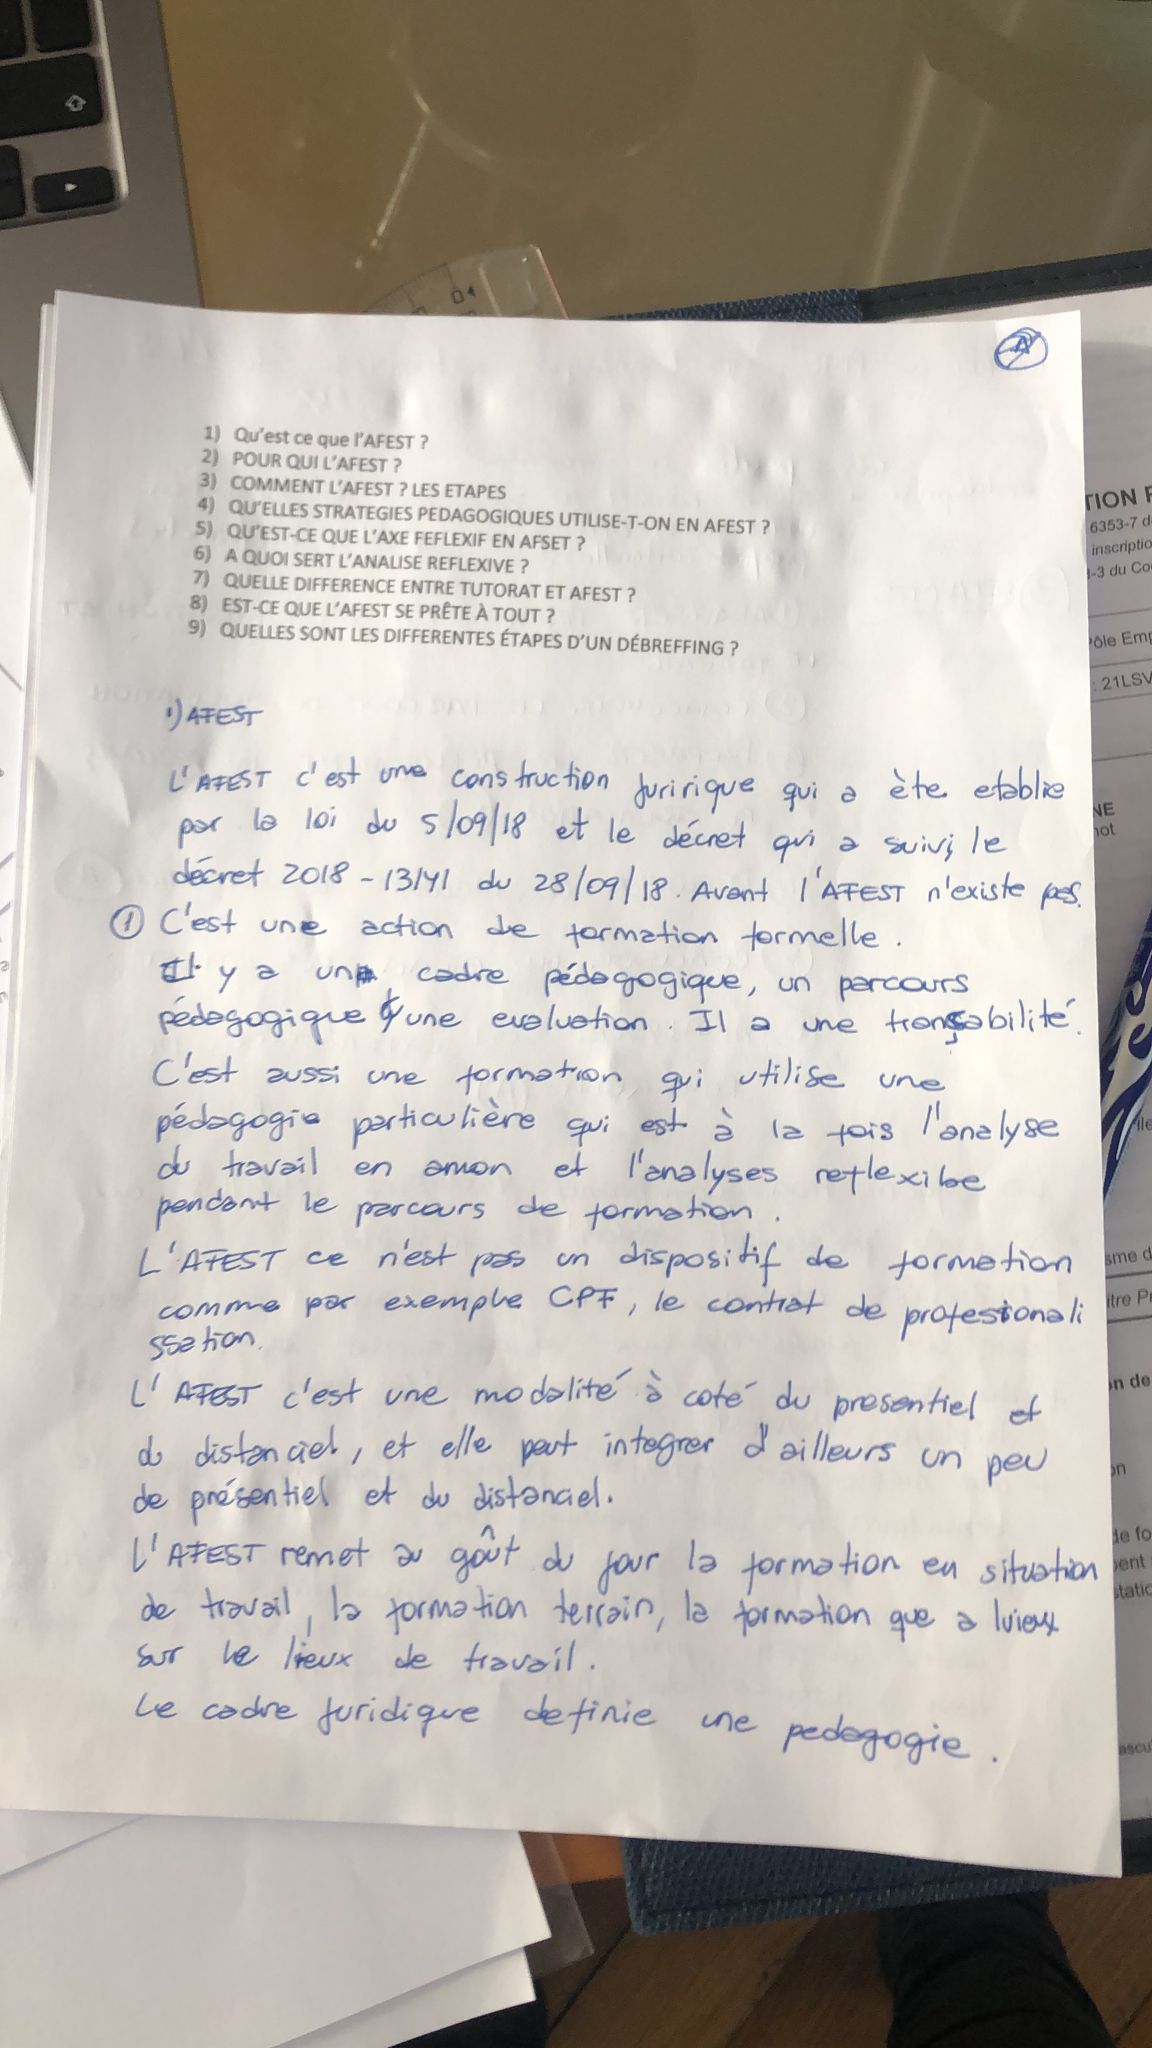 A
1) Qu'est ce que l'AFEST ?
2) POUR QUI L'AFEST ?
3) COMMENT L'AFEST ? LES ETAPES
4) QU'ELLES STRATEGIES PEDAGOGIQUES UTILISE-T-ON EN AFEST ?
5) QU'EST-CE QUE L'AXE FEFLEXIF EN AFSET ?
6) A QUOI SERT L'ANALISE REFLEXIVE ?
7) QUELLE DIFFERENCE ENTRE TUTORAT ET AFEST ?
8) EST-CE QUE L'AFEST SE PRÊTE À TOUT ?
9) QUELLES SONT LES DIFFERENTES ÉTAPES D'UN DÉBREFFING ?
1) AFEST
L'AFEST c'est une construction juririque qui a ète etablie
par la loi du 5/09/18 et le décret qui a suivi, le
décret 2018-13/41 du 28/09/18. Avant l'AFEST n'existe pas.
① C'est une action de formation formelle.
Il y a un cadre pédagogique, un parcours
pédagogique une evaluation. Il a une tranşabilité.
C'est aussi une formation qui utilise une
pédagogie particulière qui est à la fois l'analyse
du travail en amon et l'analyses reflexibe
pendant le parcours de formation.
L'AFEST ce n'est pas un dispositif de formation
comme par exemple CPF, le contrat de profesionali
ssation.
L'AFEST c'est une modalité à coté du presentiel et
du distanciel, et elle peut integrer d'ailleurs un peu
de présentiel et du distanciel.
L'AFEST remet au goût du jour la formation en situation
de travail, la formation terrain, la formation que a lvieux
sur le lieux de travail.
Le cadre juridique definie une pedagogie.
TION
6353-7 d
inscriptio
-3 du Co
Pôle Emp
: 21LSV
NE
not
isme d
itre Pr
on de
on
de fo
ent
static
ascu